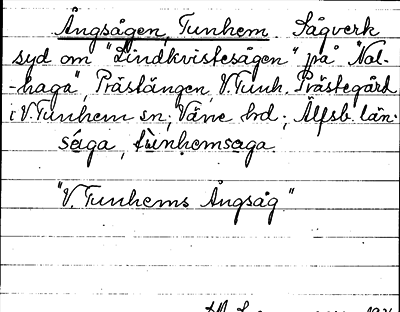 Ångsågen, Tunhem. Sågverk
syd om "Lindkvistesågen" på "Nol-
-haga", Prästängen, V. Tunh. Prästegård
i V. Tunhem sn; Väne hd.; Älfsb. län.
såga, tunhemsaga.
"V. Tunhems Ångsåg"